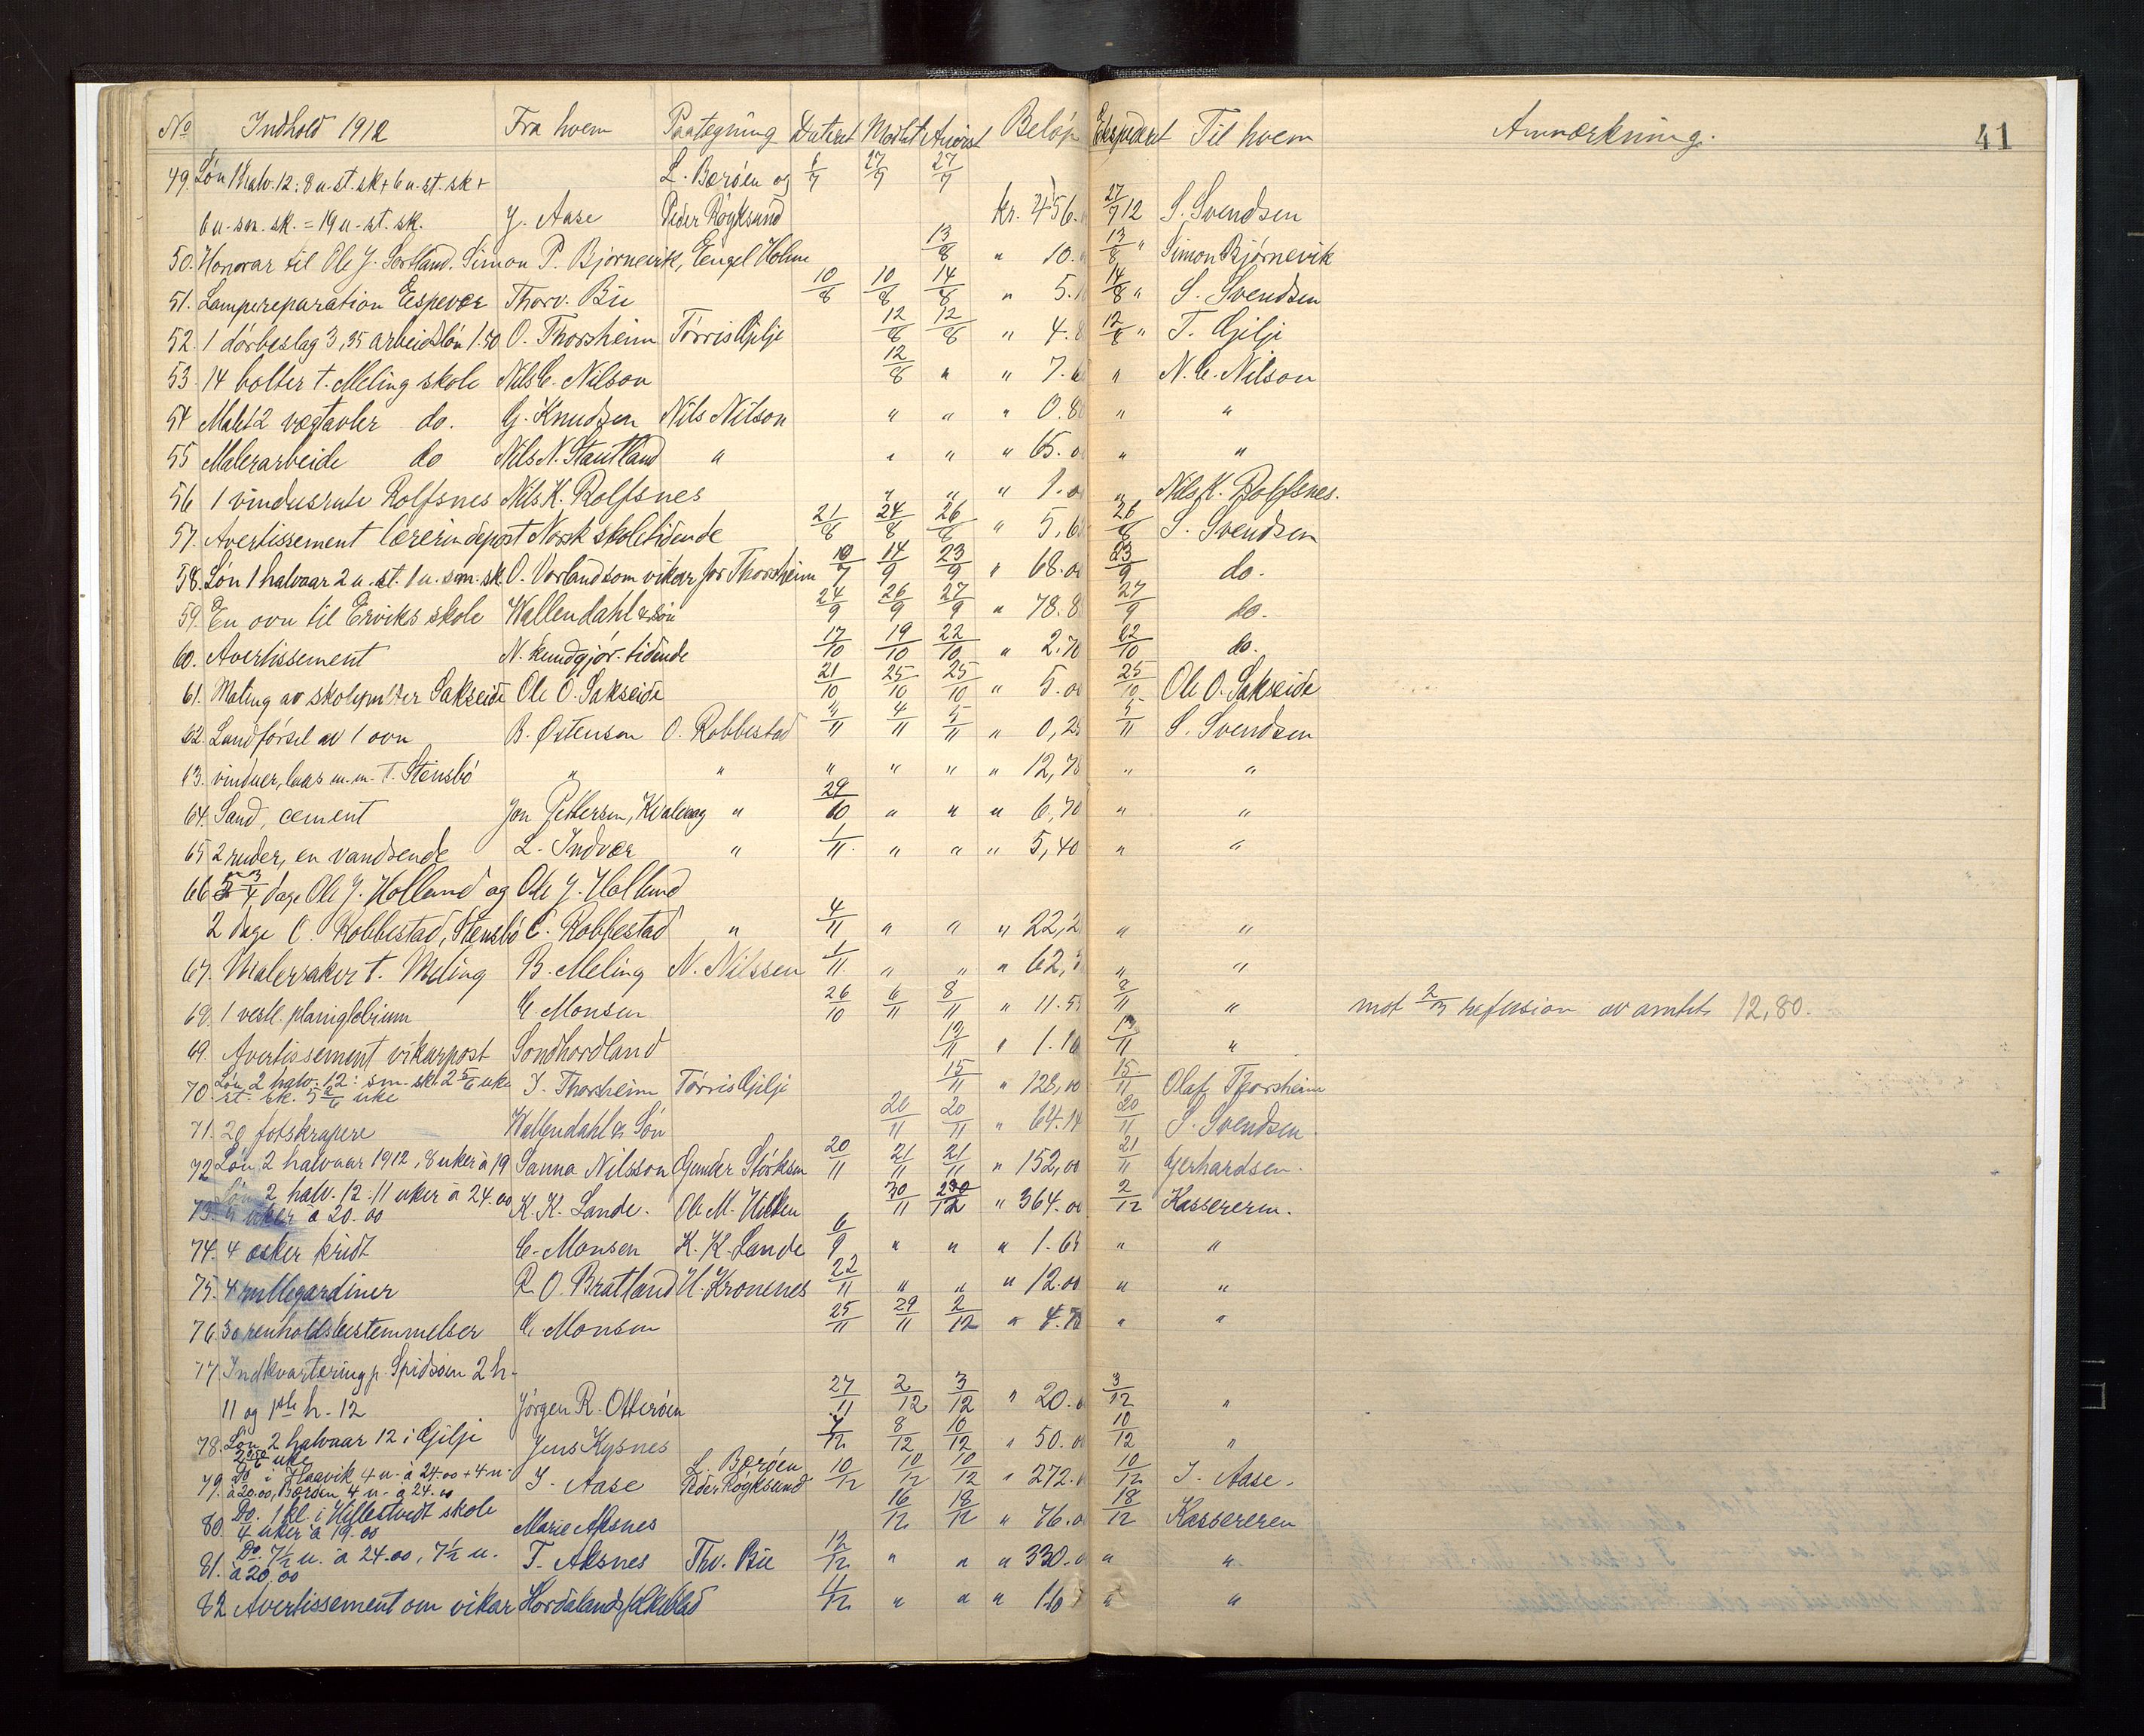 No Indhold 1912 Fra hvem Paategning Datert Motat Anvist Beløp Ekspedert Til hvem Anmærkning. 41
49. Løn 1 halv. 12: 8 u. st. sk + 6 u. st. sk + L. Børøen og 27/7 27/7
6 u. sm. sk. = 19 u. st. sk. J. Aase Peder Røyksund kr. 456. 27/7 12 S. Svendsen
50. Honorar til Ole J. Sortland. Simon P. Bjørnevik, Engel Holme 13/8 " 10. 13/8 " Simon Bjørnevik
51. Lampereparation Espevær Thorv. Bie 10/8 10/8 14/8 " 5. 14/8 " S. Svendsen
52. 1 dørbeslag 3,35 arbeidsløn 1.50 O. Thorsheim Tørris Gilje 12/8 12/8 " 4.8 12/8 " T. Gilje
53. 14 bolter t. Meling skole Nils C. Nilson 12/8 " " 7. " N. C. Nilson
54 Malt 2 vegtavler do. G. Knudsen Nils Nilson " " " 0.8 " "
55 Malerarbeide do Nils N. Stautland " " " " 65.0 " "
56 1 vindusrute Rolfsnes Nils K. Rolfsnes " " " 1.0 " Nils K. Rolfsnes.
57. Avertissement lærerindepost Norsk skoletidende 21/8 24/8 26/8 " 5,6 26/8 S. Svendsen
58. Løn 1 halvaar 2 u. st. 1 u. sm. sk. O. Vorland som vikar for Thorsheim 10/7 14/9 23/9 " 68.00 23/9 do.
59. En ovn til Erviks skole Wallendahl & søn 24/9 26/9 27/9 " 78.8 27/9 do.
60. Avertissement N. kundgjør. tidende 17/10 19/10 22/10 " 2.70 22/10 do.
61. Maling av skolepulter Sakseide Ole O. Sakseide 21/10 25/10 25/10 " 5.00 25/10 Ole O. Sakseide
62. Landførsel av 1 ovn B. Østensen O. Robbestad 4/11 4/11 5/11 " 0,25 5/11 S. Svendsen
63. vinduer, laas m.m. T. Stensbø " " " " " " 12,78 " "
64. Sand, cement Jon Pettersen, Kvalvaag " 29/10 " " " 6,70 " "
65 2 ruder, en vandsende L. Indvær " 1/11. " " " 5,40 " "
66 3/4 dage Ole J. Holland og Ole J. Holland
2 dage C. Robbestad, Stensbø C. Robbestad " 4/11 " " " 22,2 " "
67. Malersaker t. Meling B. Meling N. Nilssen 1/11. " " " 62, " "
68. 1 vestl. planiglobium C. Monsen 26/10 6/11 8/11 " 11.55 8/11 " mot 2/3 refusion av amtet 12,80.
69. Avertissement vikarpost Sondhordland 13/11 " 1.10 13/11 "
70. Løn 2 halv. 12: sm. sk. 2 5/6 uke
st. sk. 5 2/6 uke I. Thorsheim Tørris Gilje 15/11 " 128,00 15/11 Olaf Thorsheim
71. 20 fotskrapere Wallendahl & Søn 20/11 20/11 " 64.14 20/11 S. Svendsen.
72 Løn 2 halvaar 1912, 8 uker à 19 Sanna Nilsson Gunder Størksen 20/11 21/11 21/11 " 152,00 21/11 Gerhardsen.
Løn 2 halv. 12. 11 uker à 24.00
73. 5 uker à 20.00 K. K. Lande. Ole M. 30/11 2/12 " 364.00 2/12 Kassereren.
74. 4 æsker kridt C. Monsen K. K. Lande 6/9 " " " 1.65 " "
75. 4 rullegardiner R. O. Bratland H. Kronenes 22/11 " " " 12.00 " "
76. 30 renholdsbestemmelser C. Monsen 25/11 29/11 2/12 " 4.75 " "
77. Indkvartering p. Spidsøen 2 h.
11 og 1ste h. 12 Jørgen R. Otterøen 27/11 2/12 3/12 " 20. 3/12 "
78. Løn 2 halvaar 12 i Gilje Jens Kysnes 7/12 8/12 10/12 " 50.0 10/12 "
uke
79. Do i Haavik 4 u. à 24.00 + 4 u. L. Børøen
à 20.00, Børøen 4 u. à 24.00 J. Aase Peder Røyksund 10/12 10/12 10/12 " 272. 10/12 J. Aase.
80. Do. 1 kl. i Hillestvedt skole
4 uker à 19.00 Marie Aksnes 16/12 18/12 " 76.0 18/12 Kassereren
81. Do. 7 1/2 u. à 24.00, 7 1/2 u.
à 20.00 T. Aksnes Thv. Bie 12/12 " " " 330. " "
82 Avertissement om vikar Hordalands folkeblad 11/12 " " " 1.6 " "